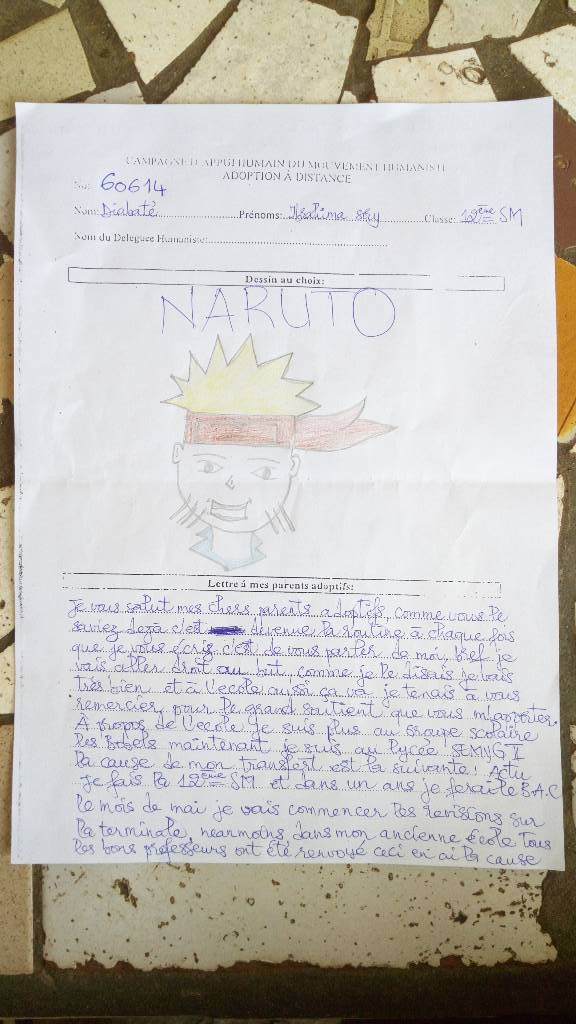 CAMPAGNE D'APPUI HUMAIN DU MOUVEMENT HUMANISTE
ADOPTION À DISTANCE
No: 60614
Nom: Diabaté Prénoms: Sky Classe: 12ème SM
Nom du Deleguee Humaniste:
Dessin au choix:
NARUTO
Lettre á mes parents adoptifs:
Je vous salut mes chers parents adoptifs, comme vous le
saviez deja c'est devenue la routine à chaque fois
que je vous écris c'est de vous parler de moi, bref je
vais aller droit au but, comme je le disais je vais
très bien et à l'ecole aussi ça va je tenais à vous
remercier pour le grand soutient que vous m'apporter.
À propos de l'ecole je suis plus au Groupe scolaire
les maintenant je suis au lycée
la cause de mon transfert est la suivante: Actu
Je fais la 12ème SM et dans un ans je ferai le B.A.C
le mois de mai je vais commencer les revisions sur
la terminale, neanmoins dans mon ancienne école tous
les bons professeurs ont été renvoyé ceci en ai la cause